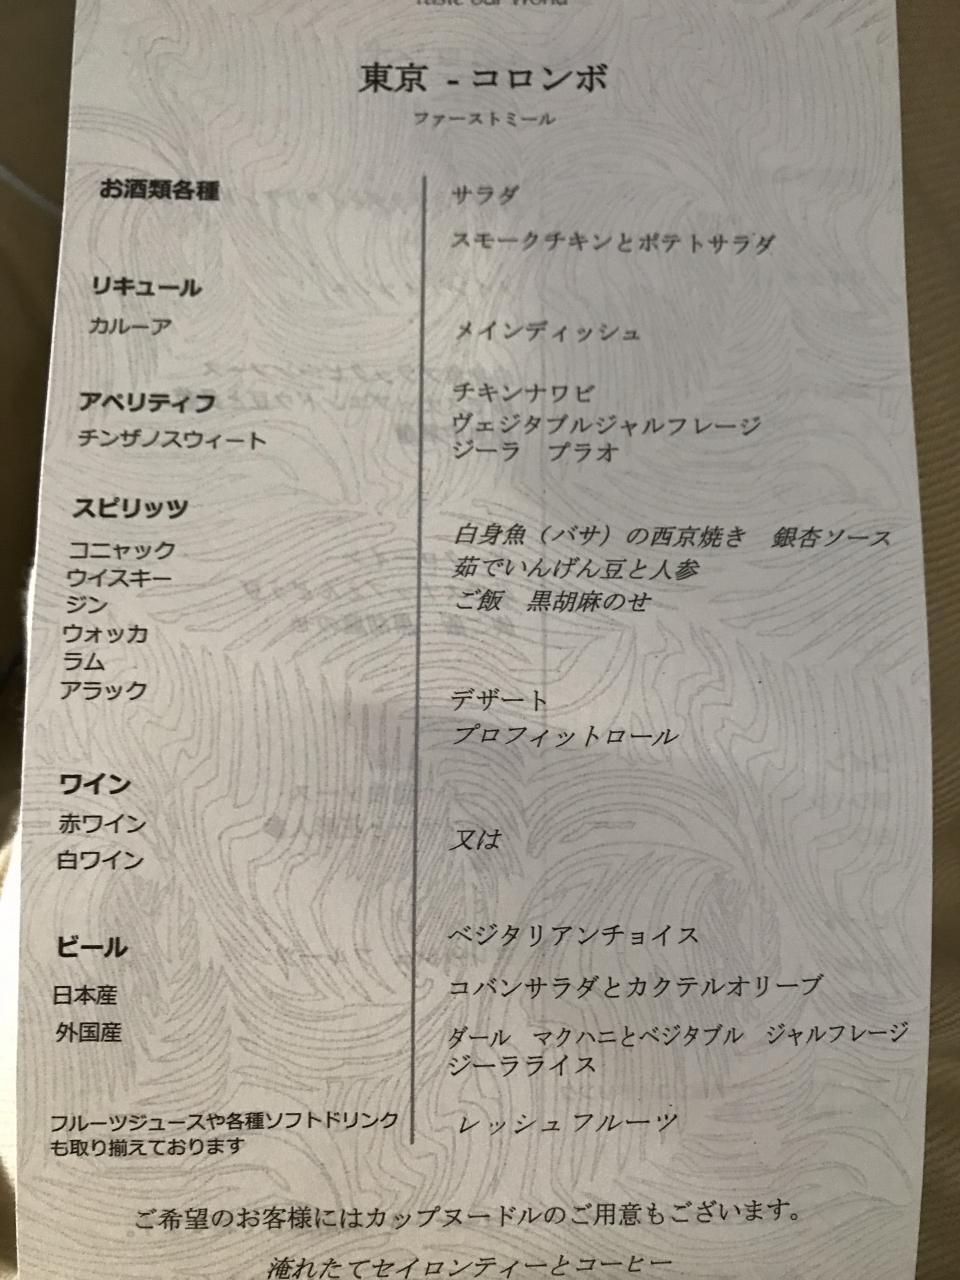 Taste our World
東京 - コロンボ
ファーストミール
お酒類各種
リキュール
カルーア
アペリティフ
チンザノスウィート
スピリッツ
コニャック
ウイスキー
ジン
ウォッカ
ラム
アラック
ワイン
赤ワイン
白ワイン
ビール
日本産
外国産
フルーツジュースや各種ソフトドリンク
も取り揃えております
サラダ
スモークチキンとポテトサラダ
メインディッシュ
チキンナワビ
ヴェジタブルジャルフレージ
ジーラ プラオ
白身魚（バサ）の西京焼き 銀杏ソース
茹でいんげん豆と人参
ご飯 黒胡麻のせ
デザート
プロフィットロール
又は
ベジタリアンチョイス
コバンサラダとカクテルオリーブ
ダール マクハニとベジタブル ジャルフレージ
ジーラライス
レッシュフルーツ
ご希望のお客様にはカップヌードルのご用意もございます。
淹れたてセイロンティーとコーヒー